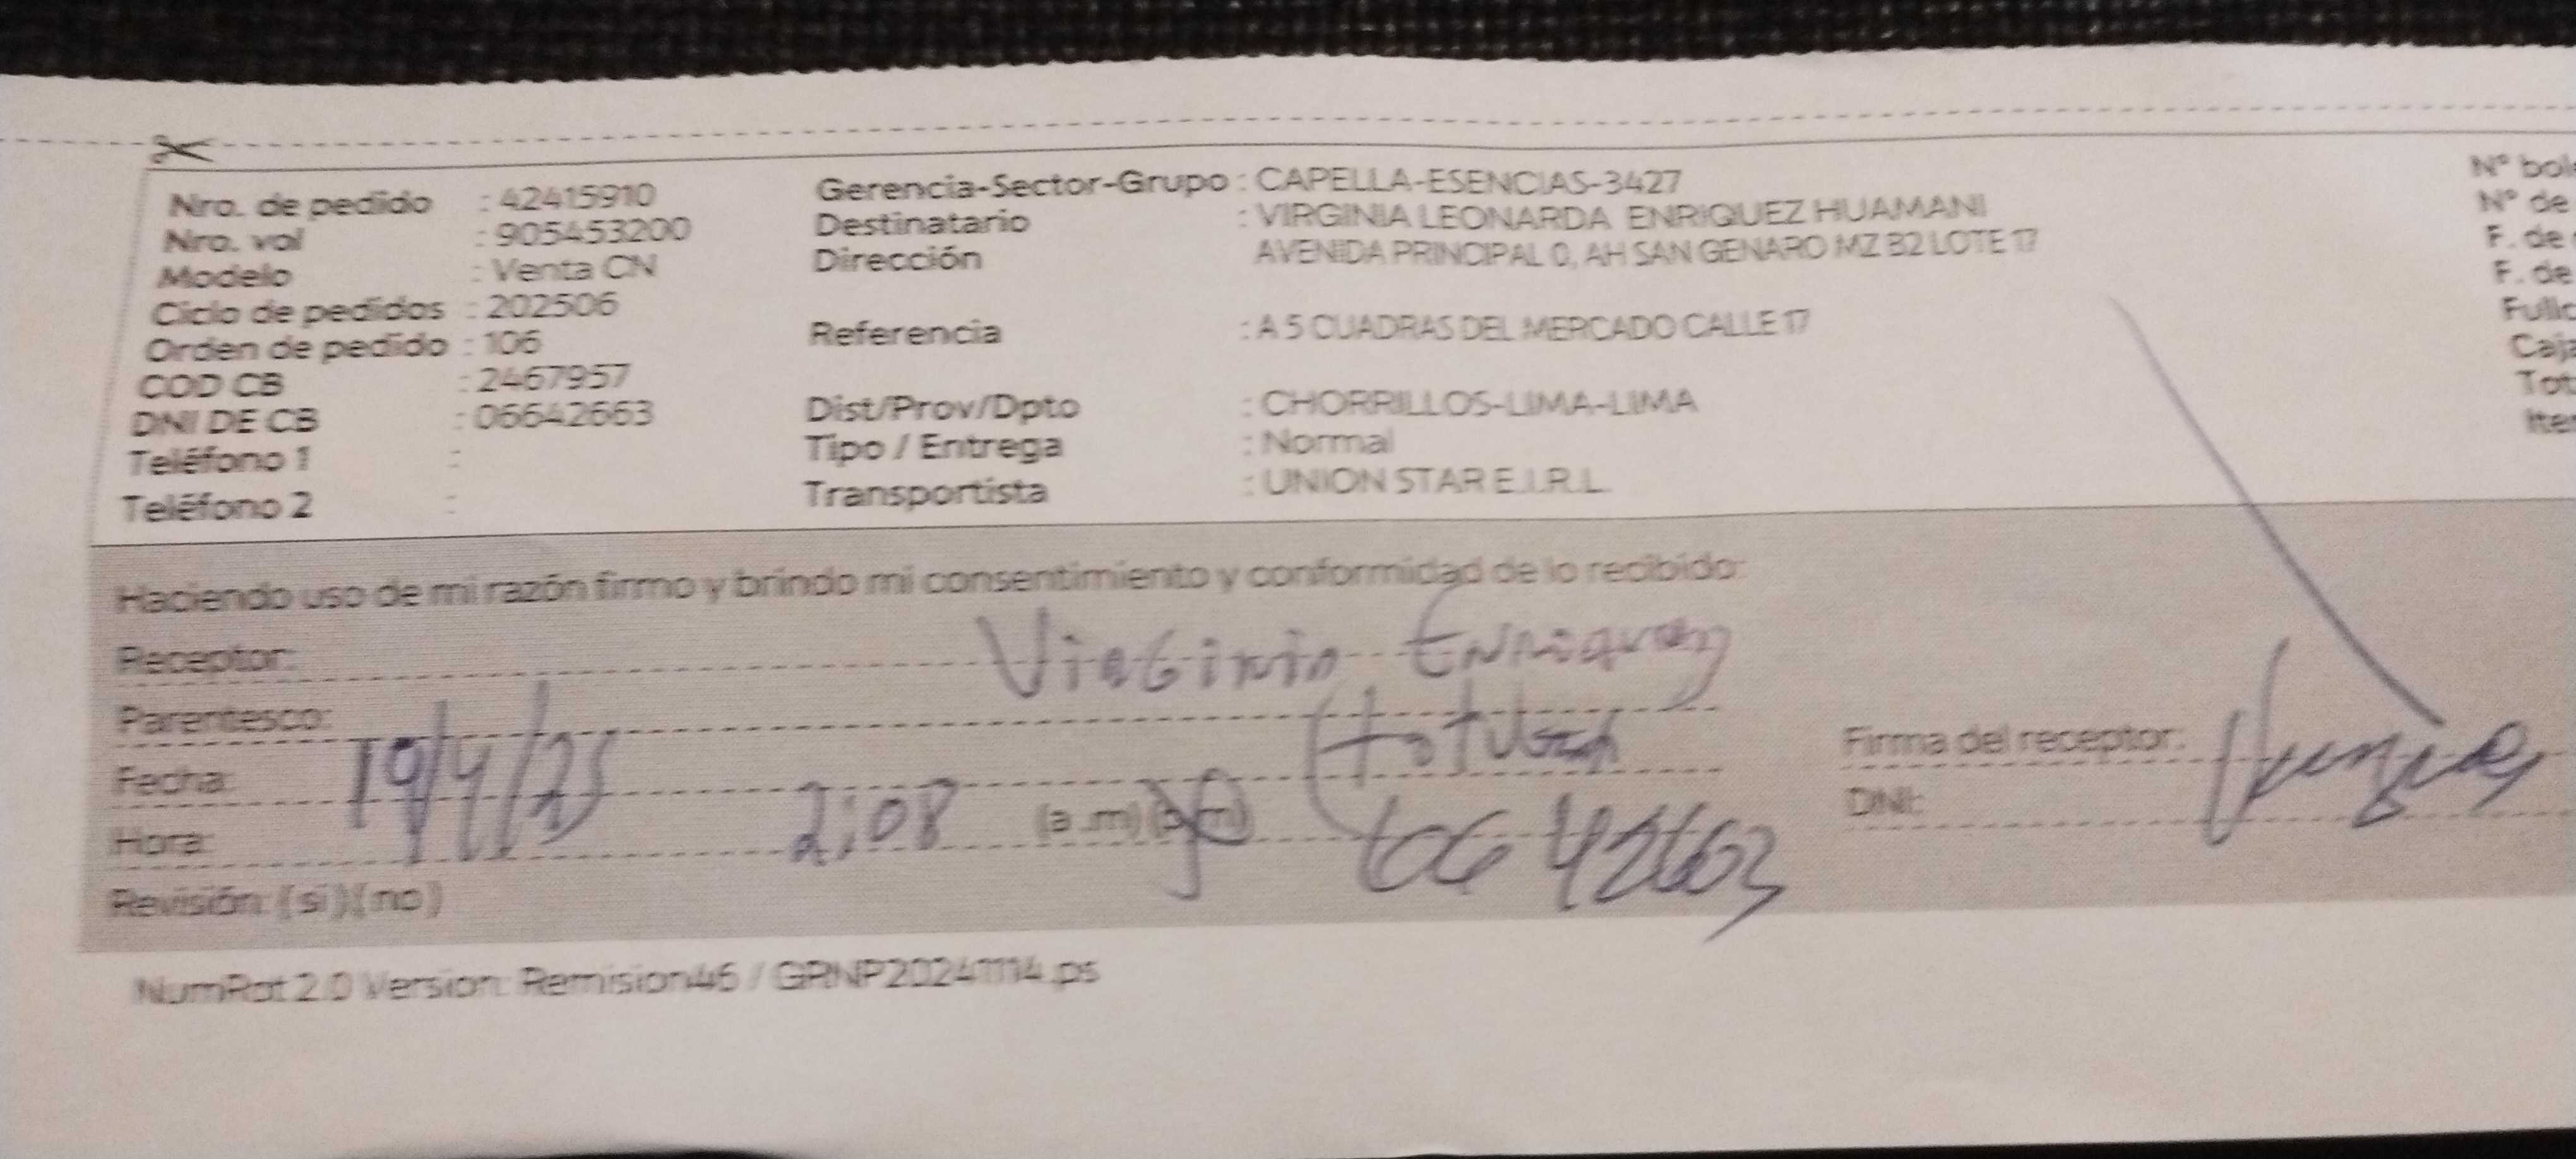 Nro. de pedido : 42415910 Gerencia-Sector-Grupo : CAPELLA-ESENCIAS-3427
Nro. vol : 905453200 Destinatario : VIRGINIA LEONARDA ENRIQUEZ HUAMANI
Modelo : Venta CN Dirección AVENIDA PRINCIPAL 0, AH SAN GENARO MZ B2 LOTE 17
Ciclo de pedidos : 202506
Orden de pedido : 106 Referencia : A 5 CUADRAS DEL MERCADO CALLE 17
COD CB : 2467957
DNI DE CB : 06642663 Dist/Prov/Dpto : CHORRILLOS-LIMA-LIMA
Teléfono 1 : Tipo / Entrega : Normal
Teléfono 2 : Transportista : UNION STAR E.I.R.L.
N° bol
N° de
F. de
F. de
Caja
Haciendo uso de mi razón firmo y brindo mi consentimiento y conformidad de lo recibido:
Receptor: Virginia Enriquez
Parentesco: titular
Fecha: 19/4/25 Firma del receptor:
Hora: 2:08 (a .m) (p.m) 06642663 DNI:
Revisión: (si) (no)
NumRot 2.0 Version: Remision46 / GRNP20241114.ps